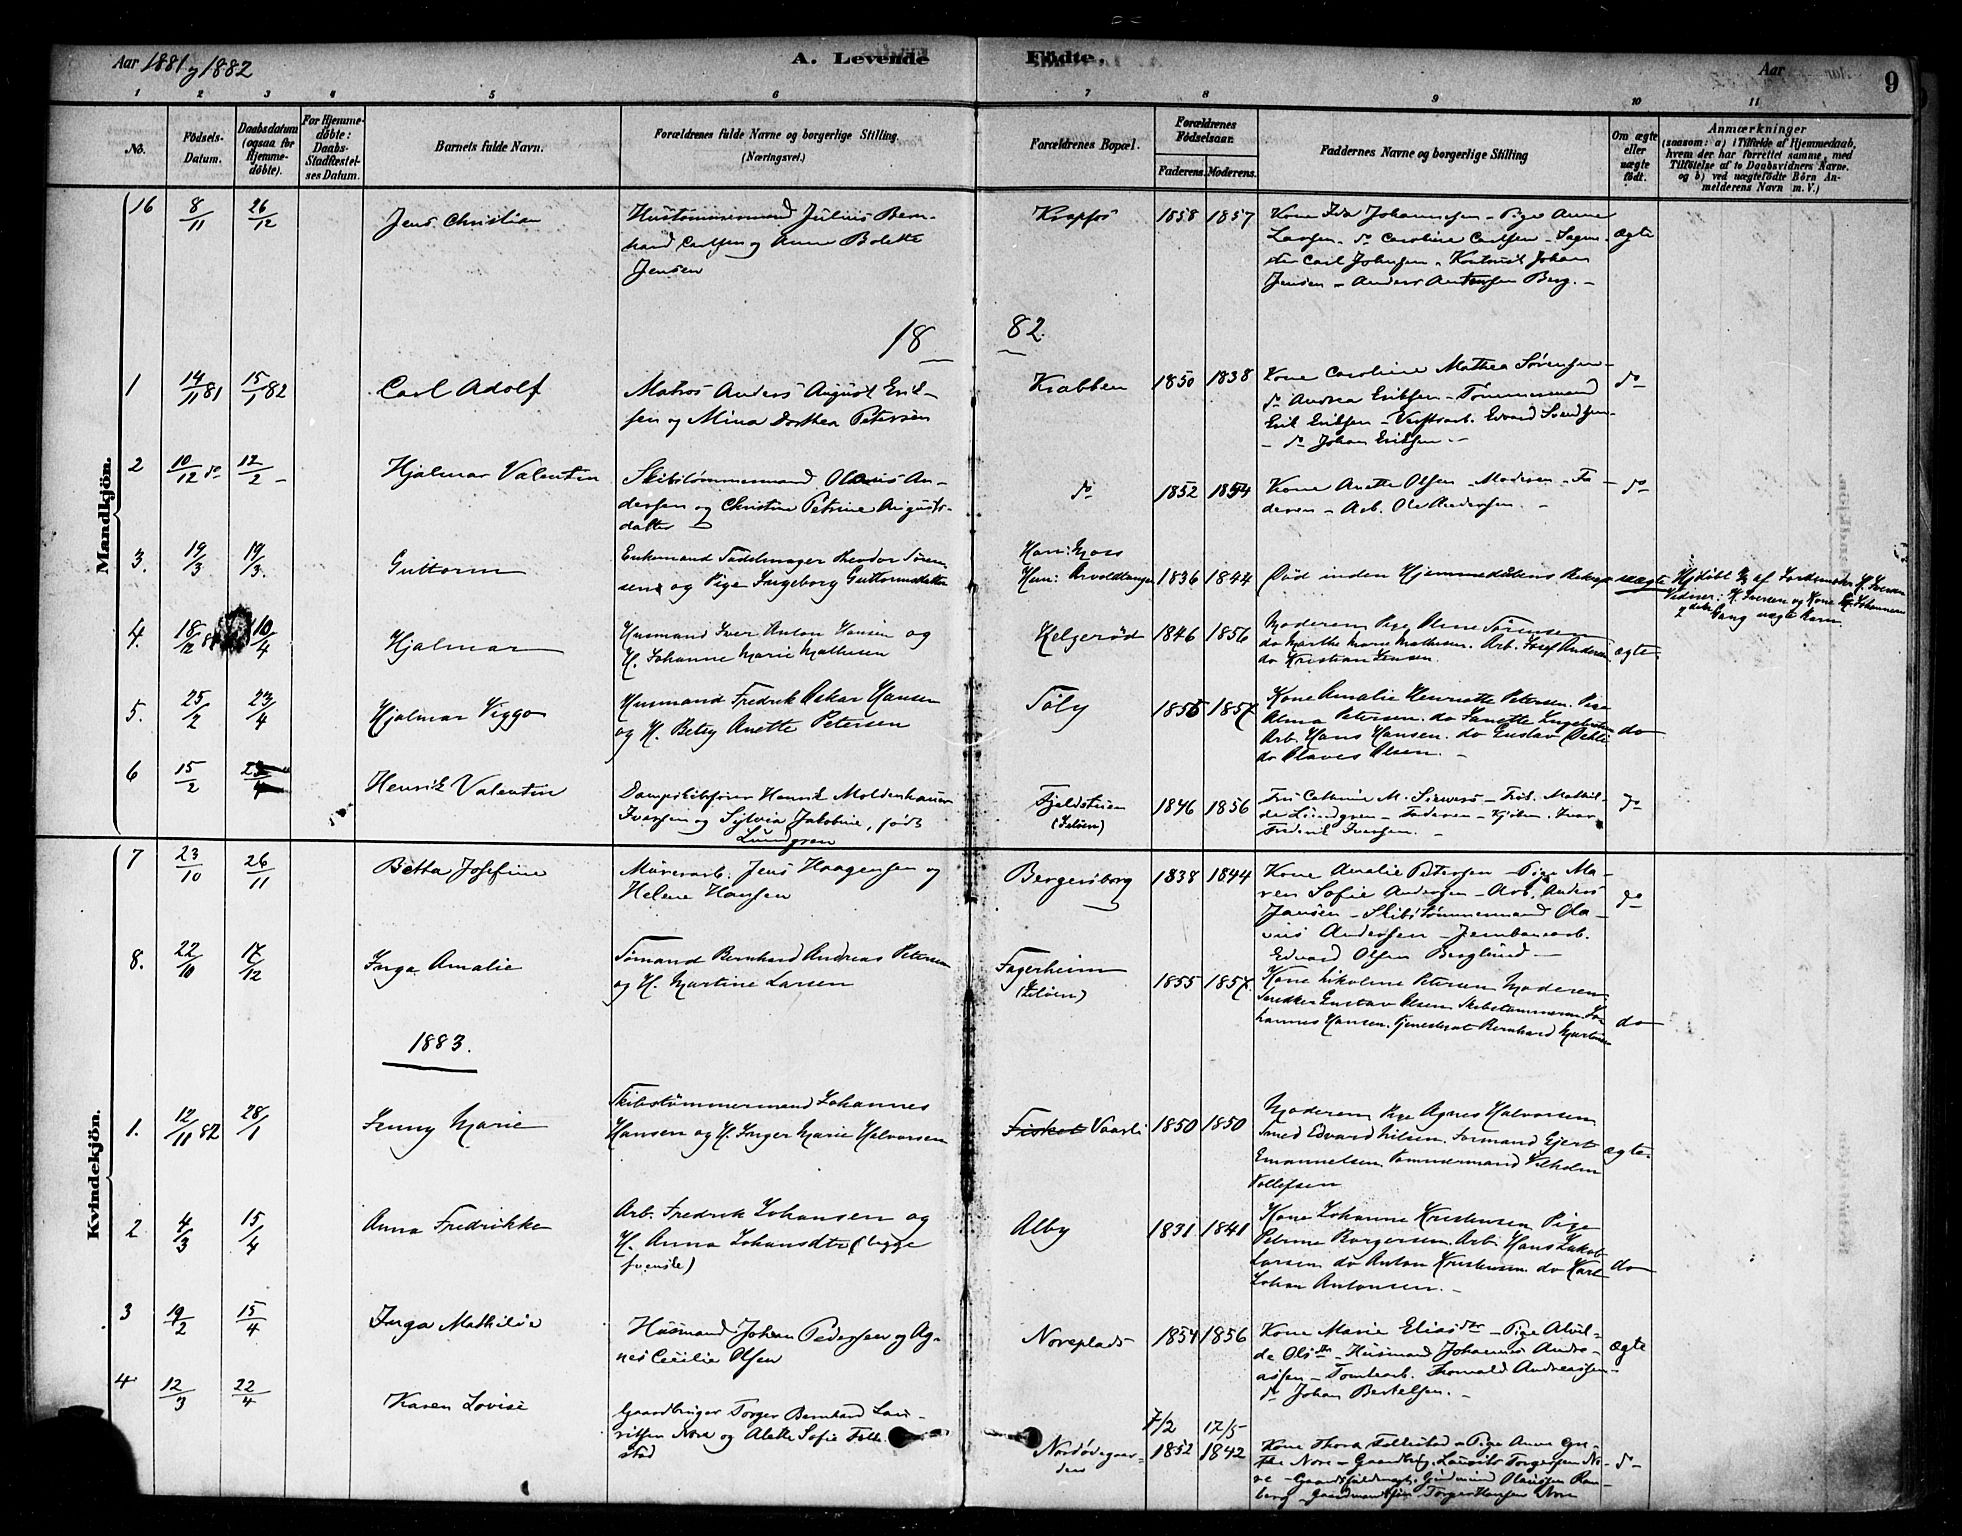 Aar 1881 og 1882
A. Levende Födte.
Aar
9
1 2 3 4 5 6 7 8 9 10 11
No.
Födsels-Datum.
Daabsdatum (ogsaa for Hjemme-döbte).
For Hjemme-döbte: Daabs-Stadfæstelses Datum.
Barnets fulde Navn.
Forældrenes fulde Navne og borgerlige Stilling. (Næringsvei.)
Forældrenes Bopæl.
Forældrenes Födselsaar.
Faderens. Moderens.
Faddernes Navne og borgerlige Stilling
Om ægte eller uægte födt.
Anmærkninger
(saasom: a) i Tilfælde af Hjemmedaab, hvem der har forrettet samme, med Tilföielse af to Daabsvidners Navne. og b) ved uægtefödte Börn Anmelderens Navn m. V.)
Mandkjön.
16 8/11 26/12 Jens Christian
Hustömmermand Julius Bern-
hard Carlsen og Anne Bolette
Jensen
Krapfos 1858 1857
Kone Johannesen - Pige Anne
Larsen - do Caroline Carlsen - Sagm-
Carl Johnsen - Johan
Jensen - Anders Antonsen Berg. -
ægte
18 82.
1 14/11 81 15/1 82 Carl Adolf
Matros Anders August Erik-
sen og Mina Dorthea Petersen
Krabben 1850 1838
Kone Caroline Mathea Sørensen -
do Andrea Eriksen - Tømmermand
Erik Eriksen - Verftsarb. Edvard Svendsen
- do Johan Eriksen. -
do
2 10/12 do 12/2 - Hjalmar Valentin
Skibstømmermand Olavus An-
dersen og Christine Petrine August-
datter
do 1852 1854
Kone Anette Olsen - Moderen - Fa-
deren - Arb. Ole Andersen. -
do
3. 19/3 19/3. Guttorm
Enkemand Sadelmager Theodor Søren-
sen og Pige Ingeborg Guttormsdatter
Han: Moss
Hun: Arvoldtangen 1836 1844
Død inden Hjemmedåbens
uægte
4. 18/2 10/4 Hjalmar
Husmand Iver Anton Hansen og
H. Johanne Marie Mathesen
Kelgerød 1846 1856
Moderen Pige Sørensen
do Marthe Marie Mathesen. Arb. Josef Andersen
do Kristian Jensen.
ægte.
5. 25/2 23/4 Hjalmar Viggo
Husmand Fredrik Oskar Hansen
og H. Betsy Anette Petersen
Töly 1857
Kone Amalie Henriette Petersen. Pige
Alma Petersen. do
Arb Hans Hansen. do Gustav
do Olaves Olsen. -
do
6 15/2 Henrik Valentin
Dampskibsfører Henrik Moldenhauer
Iversen og Sylvia Jakobine, født
Lundgren
Fjeldsteien
(Jeløen) 1846 1856
Fru Cathrine M. Sievers - Frk. Mathil-
de Lundgren - Faderen - Kjøbm. Ivar
Fredrik Iversen. -
do
Kvindekjön.
7 23/10 26/11 Betta Josefine
Murerarb. Jens Haagensen og
Helene Hansen
Bergersborg 1838 1844
Kone Amalie Petersen - Pige Ma-
ren Sofie Andersen - Arb. Anders
Jansen - Skibstömmermand Ola-
vus Andersen - Jernbanearb.
Edvard Olsen Berglund -
do
8. 22/10 17/12 Inga Amalie
Sømand Bernhard Andreas Petersen
og H. Martine Larsen
Fagerheim
(Jeløen) 1855 1857
Kone Nikoline Petersen Moderen
Snedker Gustav Olsen Skibstømmerm. Jo-
hannes Hansen. Tjenestegut Bernhard
do
1883.
1. 12/11 82 28/1 Jenny Marie
Skibstømmermand Johannes
Hansen og H. Inger Marie Halvorsen
Vaarli 1850 1850
Moderen Pige Agnes Halvorsen
Smed Edvard Nilsen. Formand Ejert
Emanuelsen. Tømmermand Vilhelm
Tollefsen
ægte.
2 4/3 15/4 Anna Fredrikke
Arb. Fredrik Johansen og
H. Anna Johansdtr (begge
svenske)
Alby 1831 1841
Kone Johanne Kristensen Pige
Petrine Borgersen. Arb. Hans Jakob
Larsen do Anton Kristensen do Karl
Johan Antonsen. -
do
3 19/2 15/4 Inga Mathilde
Husmand Johan Pedersen og Ag-
nes Cecilie Olsen
Noreplads 1854 1856
Kone Marie Eliasdtr - Pige Alvil-
de Olsdtr - Husmand Johannes Andre-
assen - Tomtearb. Thorvald Andreassen -
do Johan Bertelsen. -
ægte
4 12/3 22/4 Karen Lovise
Gaardbruger Torger Bernhard Lau-
ritsen Nore og Alette Sofie Folle-
stad
7/2 17/5
Nordøvegaar-
den 1852 1842
Kone Thora Follestad - Pige Anne
Nore - Gaardbrg. Laurits Torgersen No-
re - Olaussen
Torger Hansen Nore
do